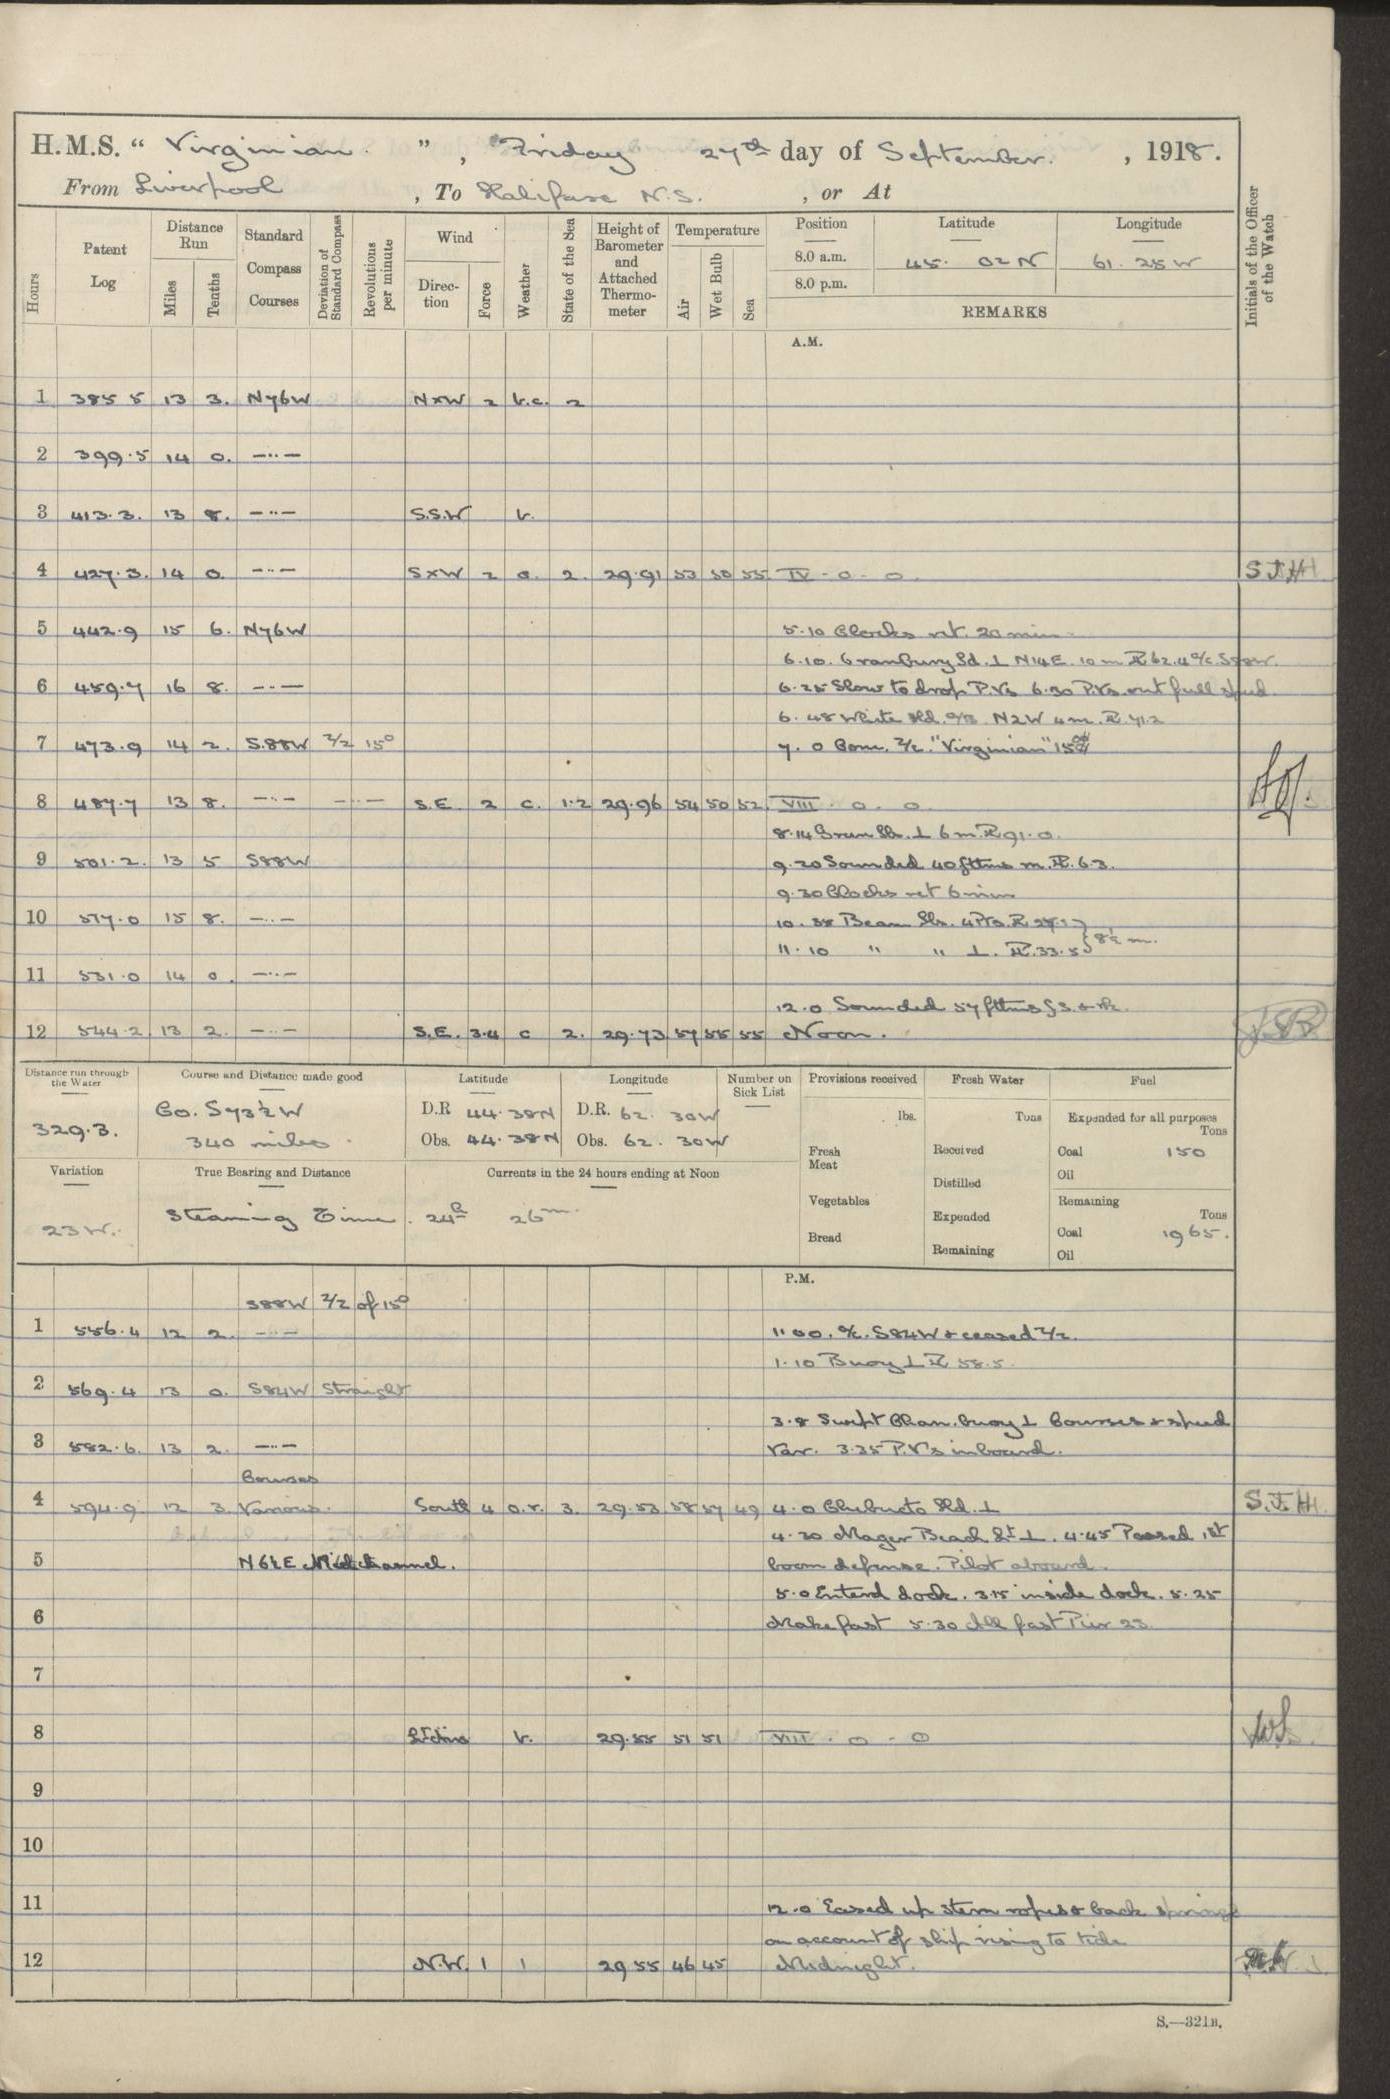 H.M.S. “ Virginian. ” , Friday 27th day of September. , 1918.
From Liverpool , To Halifax N.S. , or At
Hours
Patent Log
Distance Run
Miles
Tenths
Standard Compass Courses
Deviation of Standard Compass
Revolutions per minute
Wind
Direction
Force
Weather
State of the Sea
Height of Barometer and Attached Thermometer
Temperature
Air
Wet Bulb
Sea
Position Latitude Longitude
8.0 a.m. 45. 02 N 61. 25 W
8.0 p.m.
REMARKS
Initials of the Officer of the Watch
A.M.
1 385 5 13 3. N76W NxW 2 b.c. 2
2 399.5 14 0. —··—
3 413.3. 13 8. —··— S.S.W b.
4 427.3. 14 0 —··— SxW 2 o. 2. 29.91 53 50 55 IV . o . o S.F.H.
5 442.9 15 6. N76W 5.10 Clocks ret. 20 min
6.10. Cranbury Id. ⊥ N14E. 10 m PL 62.4 a/c S88W.
6 459.7 16 8. —··— 6.25 Slow to drop P.Vs 6.30 P.Vs. out full speed
6.48 White Hd. N2W 4m. PL 71.2
7 473.9 14 2. S.88W Z/Z 15° 7.0 Com. Z/Z. "Virginian" 15
8 487.7 13 8. —··— —··— S.E. 2 c. 1.2 29.96 54 50 52. VIII . o . o
8.14 Green Is. ⊥ 6 m. PL 91.0.
9 501.2. 13 5 S88W 9.20 Sounded 40 fthms m. PL. 6.3.
9.30 Clocks ret 6 min
10 517.0 15 8. —··— 10.38 Beaver Is. 4 Pts. PL
11.10 " " ⊥. PL. 33.5 } 8½ m.
11 531.0 14 0. —··—
12.0 Sounded 57 fthms
12 544.2 13 2. —··— S.E. 3.4 c 2. 29.73 57 55 55 Noon.
Distance run through the Water
Course and Distance made good
Latitude
Longitude
Number on Sick List
Provisions received
Fresh Water
Fuel
329.3.
Co. S73½W
340 miles.
D.R 44.38N D.R. 62. 30W
Obs. 44.38N Obs. 62. 30W
lbs.
Tons
Expended for all purposes
Tons
Fresh Meat
Received
Coal 150
Oil
Distilled
Variation
True Bearing and Distance
Currents in the 24 hours ending at Noon
Vegetables
Remaining
Tons
23 W.
Steaming Time. 24h 26m.
Expended
Bread
Coal 1965.
Remaining
Oil
P.M.
S88W Z/Z of 15°
1 556.4 12 2. —··— 1.00. a/c. S84W & ceased Z/Z.
1.10 Buoy ⊥ PL 58.5.
2 569.4 13 0. S84W Straight
3.8 Swept Chan. buoy ⊥ Courses & speed
3 582.6. 13 2. —··— Var. 3.35 P.V's inboard.
Courses
4 594.9 12 3. Various. South 4 o.r. 3. 29.53 58 57 49 4.0 Chebucto Hd. ⊥ S.F.H.
4.20 Mager Beach Lt ⊥. 4.45 Passed 1st
5 N6½E Mid channel. boom defense. Pilot aboard.
5.0 Enterd dock. 3.15 inside dock. 5.25
6 Make fast 5.30 All fast Pier 23.
7
8 b. 29.55 51 51 VIII . o . o
9
10
11 12.0 Eased up stern ropes & back springs
on account of ship rising to tide
12 N.W. 1 1 29 55 46 45 Midnight.
S.—321B.